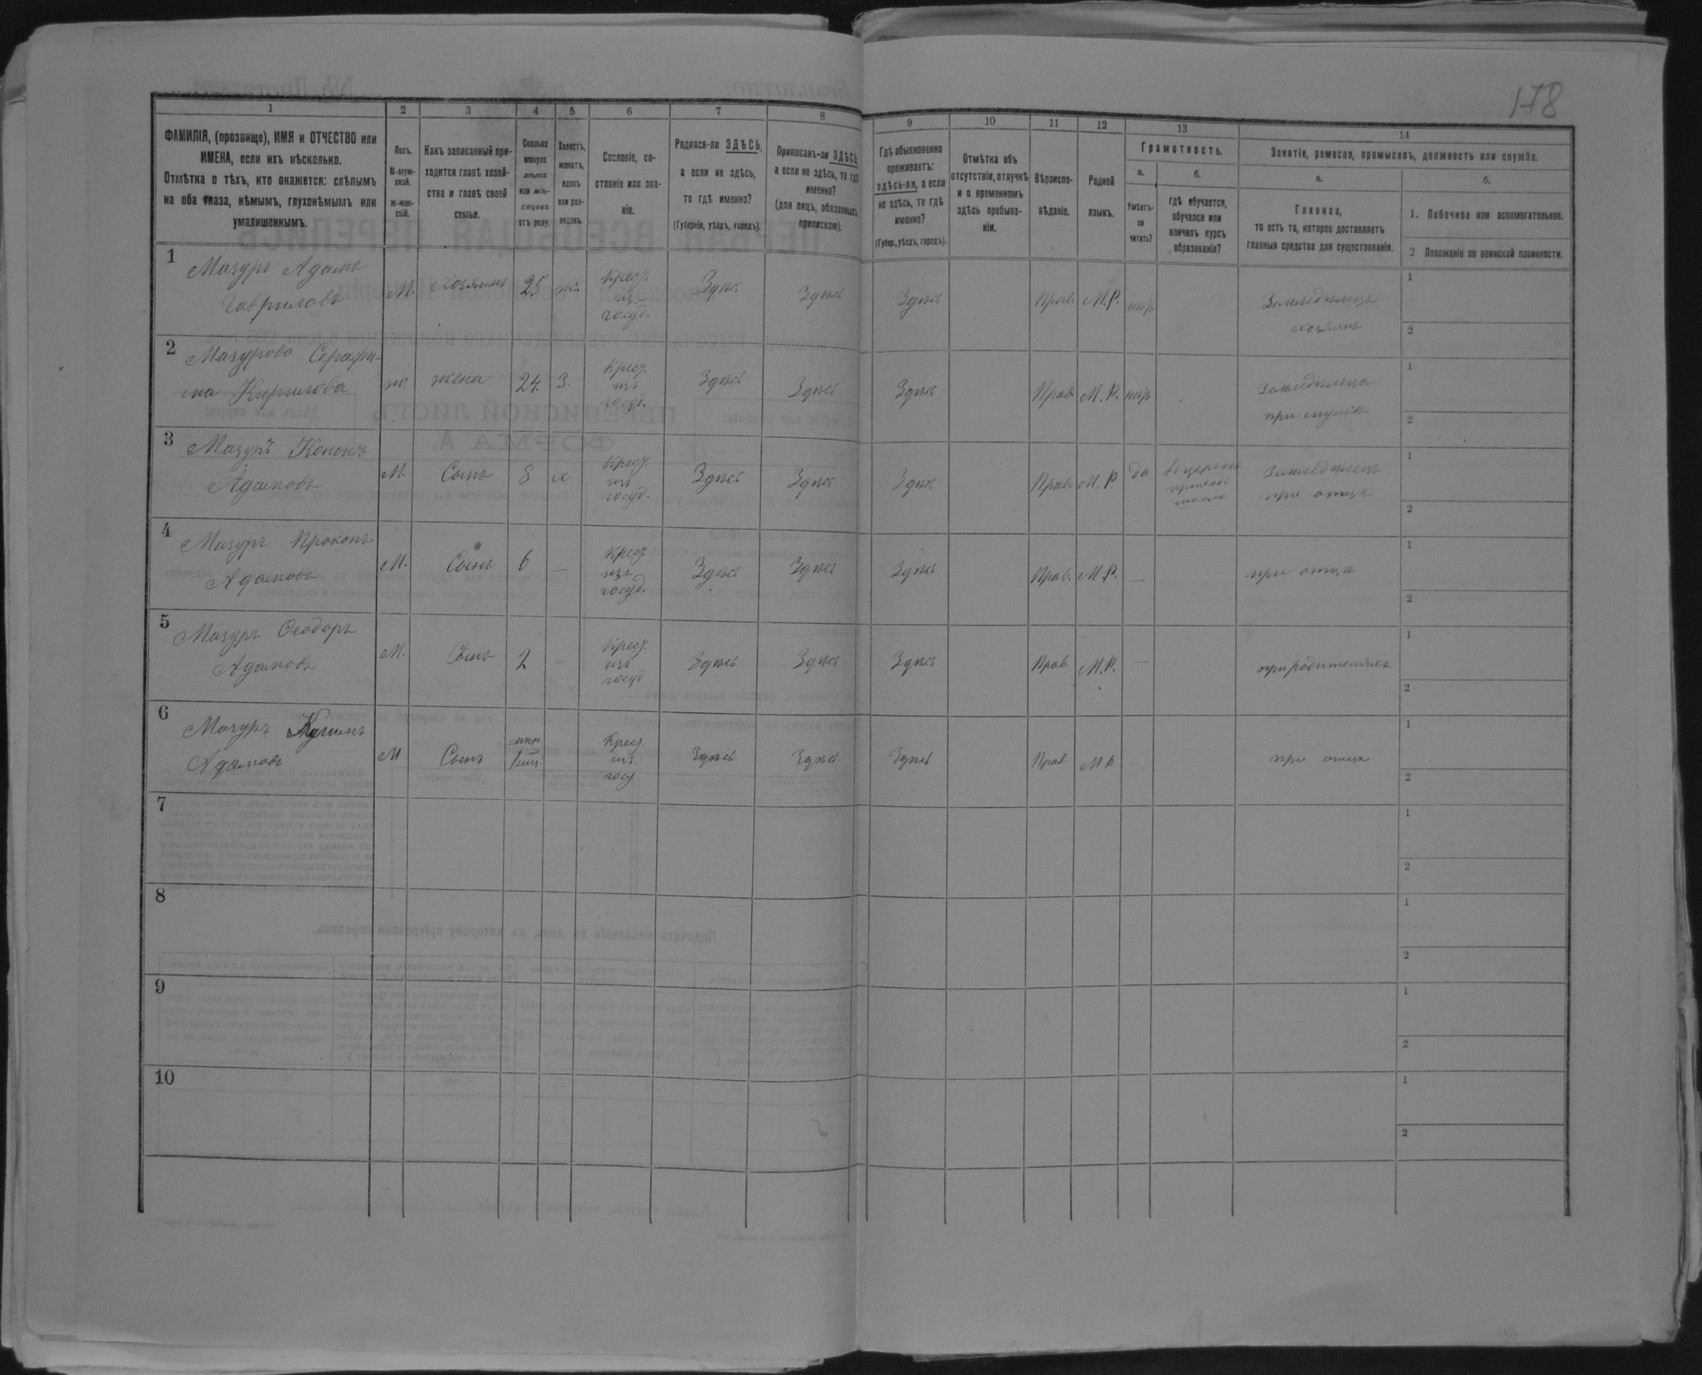 178
1 2 3 4 5 6 7 8 9 10 11 12 13 14
ФАМИЛІЯ, (прозвище), ИМЯ и ОТЧЕСТВО или
ИМЕНА, если ихъ нѣсколько.
Отмѣтка о тѣхъ, кто окажется: слѣпымъ
на оба глаза, нѣмымъ, глухонѣмымъ или
умалишеннымъ.
Полъ.
М-муж-
ской.
ж-жен-
скій.
Какъ записанный при-
ходится главѣ хозяй-
ства и главѣ своей
семьи.
Сколько
минуло
лѣтъ
или мѣ-
сяцевъ
отъ роду.
Холостъ,
женатъ,
вдовъ
или раз-
веденъ.
Сословіе, со-
стояніе или зва-
ніе.
Родился-ли ЗДѢСЬ,
а если не здѣсь,
то гдѣ именно?
(Губернія, уѣздъ, городъ).
Приписанъ-ли ЗДѢСЬ,
а если не здѣсь, то гдѣ
именно?
(для лицъ, обязанныхъ
припискою).
Гдѣ обыкновенно
проживаетъ:
здѣсь-ли, а если
не здѣсь, то гдѣ
именно?
(Губер., уѣздъ, городъ).
Отмѣтка объ
отсутствіи, отлучкѣ
и о временномъ
здѣсь пребыва-
ніи.
Вѣроиспо-
вѣданіе.
Родной
языкъ.
Грамотность.
а.
Умѣетъ-
ли
читать?
б.
Гдѣ обучается,
обучался или
кончилъ курсъ
образованія?
Занятіе, ремесло, промыселъ, должность или служба.
а.
Главное,
то есть то, которое доставляетъ
главныя средства для существованія.
б.
1. Побочное или вспомогательное.
2 Положеніе по воинской повинности.
1
Мазуръ Адамъ
Гавриловъ
М.
хозяинъ
25
ж.
Крест.
изъ
госуд.
Здѣсь
Здѣсь
Здѣсь
Прав.
М.Р.
нѣтъ
Земледѣлецъ
хозяинъ
1
2
2
Мазурова Серафи-
ма Кирилова
ж
жена
24.
З.
Крест.
изъ
госуд.
Здѣсь
Здѣсь
Здѣсь
Прав.
М.Р.
нѣтъ
Земледѣлица
при мужѣ
1
2
3
Мазуръ Кононъ
Адамовъ
М.
Сынъ
8
х
Крест.
изъ
госуд.
Здѣсь
Здѣсь
Здѣсь
Прав.
М.Р.
да
въ церковн.
приходс.
школѣ
Земледѣлецъ
при отцѣ
1
2
4
Мазуръ Прокопъ
Адамовъ
М.
Сынъ
6
—
Крест.
изъ
госуд.
Здѣсь
Здѣсь
Здѣсь
Прав.
М.Р.
—
при отцѣ
1
2
5
Мазуръ Ѳеодоръ
Адамовъ
М.
Сынъ
2
—
Крест.
изъ
госуд
Здѣсь
Здѣсь
Здѣсь
Прав.
М.Р.
—
при родителяхъ
1
2
6
Мазуръ
Адамовъ
М
Сынъ
Крест.
изъ
госуд
Здѣсь
Здѣсь
Здѣсь
Прав.
М.Р.
при отцѣ
1
2
7
1
2
8
1
2
9
1
2
10
1
2